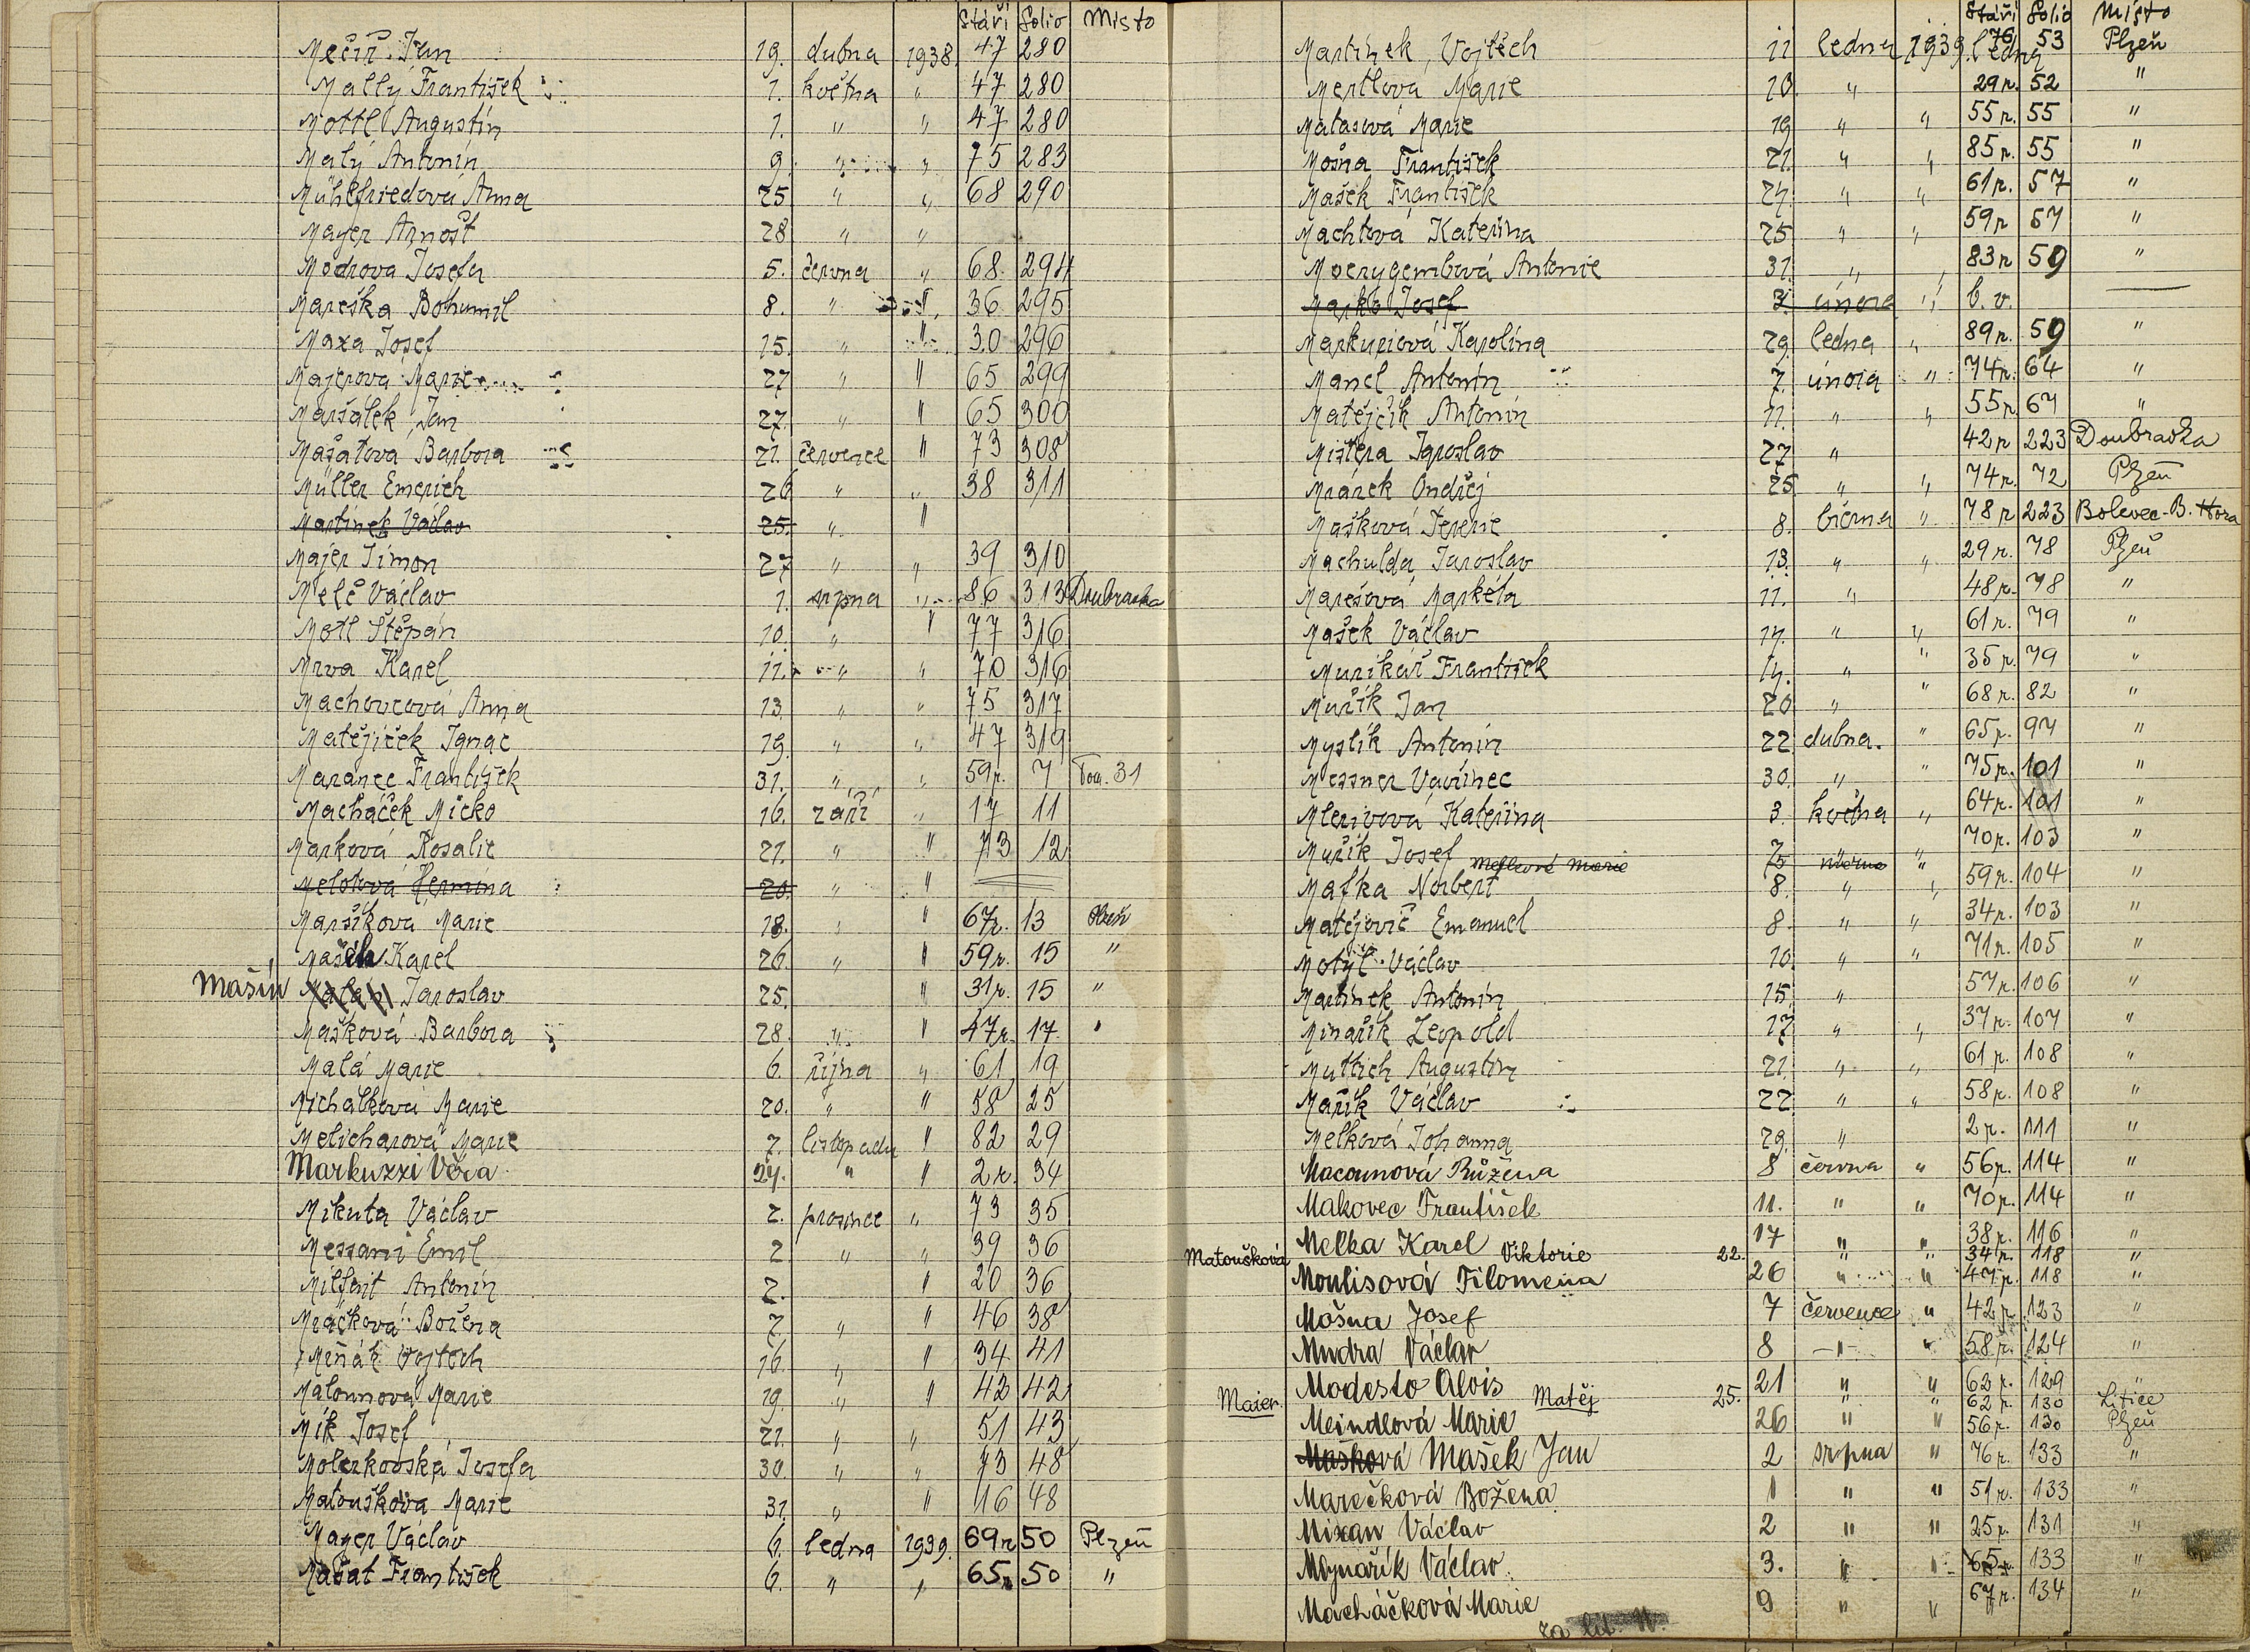 Stáří Folio Místo
Mečíř Jan 19. dubna 1938 47 280
Mallý František 1. května " 47 280
Mottl Augustin 1. " " 47 280
Malý Antonín 9. " " 75 283
Mühlfriedová Anna 25 " " 68 290
Mayer Arnošt 28 " "
Modrova Josefa 5. června " 68 294
Mareška Bohumil 8. " " 36 295
Maxa Josef 15. " " 30 296
Majerova Marie 27 " " 65 299
Maršálek Jan 27. " " 65 300
Mašatova Barbora 21. července " 73 308
Müller Emerich 26 " " 38 311
Martinek Václav 25. " "
Majer Šimon 27 " " 39 310
Melč Václav 1. srpna " 86 313 Doubravka
Motl Štěpán 10. " " 77 316
Mrva Karel 11. " " 70 316
Machovcová Anna 13. " " 75 317
Matějíček Ignac 19. " " 47 319
Maranec František 31. " " 59 r. 7 Tom. 31
Macháček Micko 16. září " 17 11
Marková Rosalie 21. " " 73 12
Melotová Hermina 20. " "
Maršíkova Marie 18. " " 67 r. 13 Plzeň
Karel 26. " " 59 r. 15 "
Mašín Jaroslav 25. " 31 r. 15 "
Mašková Barbora 28. " " 47 r. 17 "
Malá Marie 6. října " 61 19
Michálkova Marie 20. " " 58 25
Melicharová Marie 7. listopadu " 82 29
Markuzzi Věra 24. " " 2 r. 34
Mikuta Václav 2. prosince " 73 35
Messani Emil 2 " " 39 36
Antonín 2. " 20 36
Božena 7. " " 46 38
Miňák Vojtěch 16. " " 34 41
Matounova Marie 19. " " 42 42
Mík Josef 21. " " 51 43
Josefa 30. " " 73 48
Matouškova Marie 31. " " 16 48
Mayer Václav 6. ledna 1939. 69 r 50 Plzeň
Mašat František 6. " " 65 50 "
Stáří Folio Místo
Martínek, Vojtěch 11 ledna 1939. 76 53 Plzeň
Mertlová Marie 10. " 29 r. 52 "
Matasová Marie 19 " " 55 r. 55 "
Mošna František 21. " " 85 r. 55 "
Mašek František 24 " " 61 r. 57 "
Machtová Kateřina 25 " " 59 r 57 "
Antonie 31. " " 83 r 59 "
Josef 3. února " b. v.
Karolína 29. ledna " 89 r. 59 "
Manel Antonín 7. února " 74 r. 64 "
Matějčík Antonín 11. " " 55 r. 67 "
Mistera Jaroslav 27 " 42 r 223 Doubravka
Mrázek Ondřej 25 " " 74 r. 72 Plzeň
Mašková Terezie 8. března " 78 r 223 Bolevec-B. Hora
Machulda Jaroslav 13. " " 29 r. 78 Plzeň
Marešová Markéta 11. " 48 r. 78 "
Mašek Václav 14. " " 61 r. 79 "
František 14. " " 35 r. 79 "
Muřík Jan 20 " " 68 r. 82 "
Myslík Antonín 22 dubna. " 65 r. 97 "
Messner Vavřinec 30. " " 75 r. 101 "
Kateřina 3. května " 64 r. 101 "
Muřík Josef 7 " " 70 r. 103 "
Marie
Mafka Norbert 8. " " 59 r. 104 "
Matějovič Emanuel 8. " " 34 r. 103 "
Motyl Václav 10. " " 71 r. 105 "
Martínek Antonín 15. " 57 r. 106 "
Minařík Leopold 17 " " 37 r. 107 "
Muttich Augustin 21. " " 61 r. 108 "
Mařík Václav 22 " " 58 r. 108 "
Melková Johanna 29. " 2 r. 111 "
Macounová Růžena 8 června " 56 r. 114 "
Makovec František 11. " " 70 r. 114 "
Melka Karel 17 " " 38 r. 116 "
Matoušková Viktorie 22. " " 34 r. 118 "
Moulisová Filomena 26 " " 47 r. 118 "
Mošna Josef 7 července " 42 r 123 "
Mudra Václav 8 " " 58 r. 124 "
Modesto Alois 21 " " 62 r. 129 "
Maier Matěj 25. " " 62 r. 130 Litice
Meindlová Marie 26 " " 56 r. 130 Plzeň
Mašková Mašek Jan 2 srpna " 76 r. 133 "
Marečková Božena 1 " " 51 r. 133 "
Mixan Václav 2 " " 25 r. 131 "
Mlynařík Václav 3. " " 65 r. 133 "
Macháčková Marie 9 " " 67 r. 134 "
za lit. N.